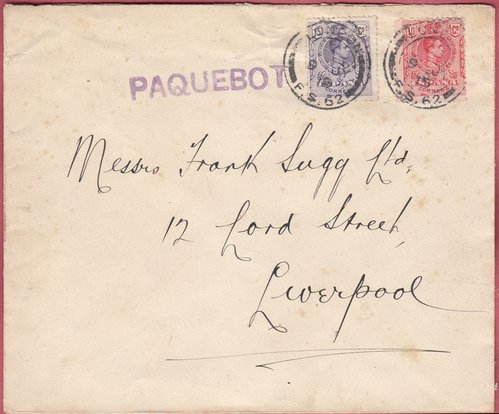 PAQUEBOT
LONDON
F.S. 62
LONDON
F.S. 62
Messrs Frank Sugg Ltd.
12 Lord Street,
Liverpool